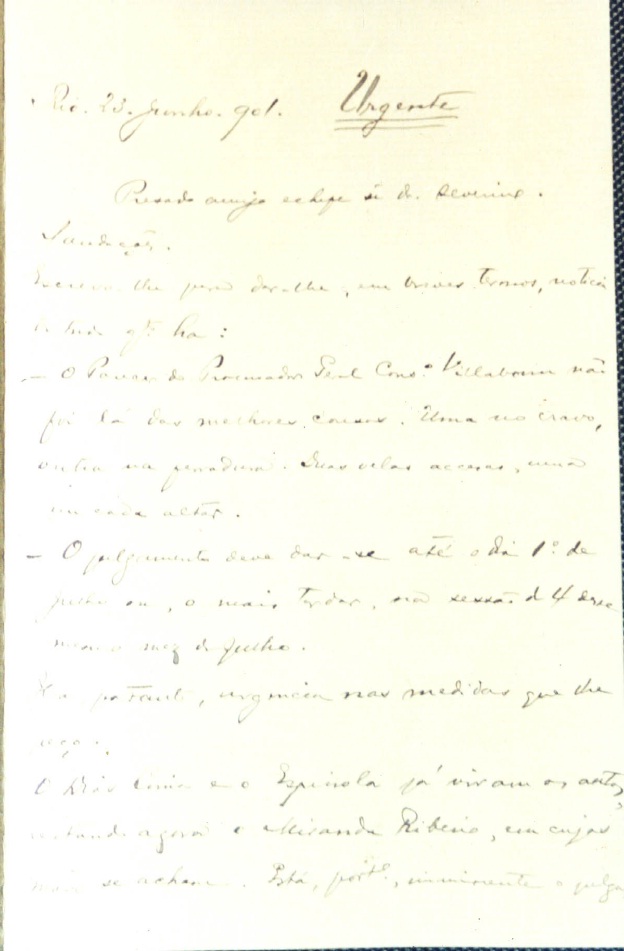 Rio. 23. Junho. 901. Urgente
Presado amigo e chefe Sr. Dr. Severino.
Saudações.
Escrevo-lhe para dar-lhe, em breves termos, noticia
de tudo qto ha:
— O Parecer do Procurador Geral Consº Villaboim não
foi lá das melhores cousas. Uma no cravo,
outra na ferradura. Duas velas accesas, uma
em cada altar.
— O julgamento deve dar-se até o dia 1º de
Julho ou, o mais tardar, na sessão d 4 desse
mesmo mez de Julho.
Ha, portanto, urgencia nas medidas que lhe
peço.
O Dias Lima e o Espinola já viram os autos,
estando agora o Miranda Ribeiro, em cujas
mãos se acham. Está, portº, imminente o julga